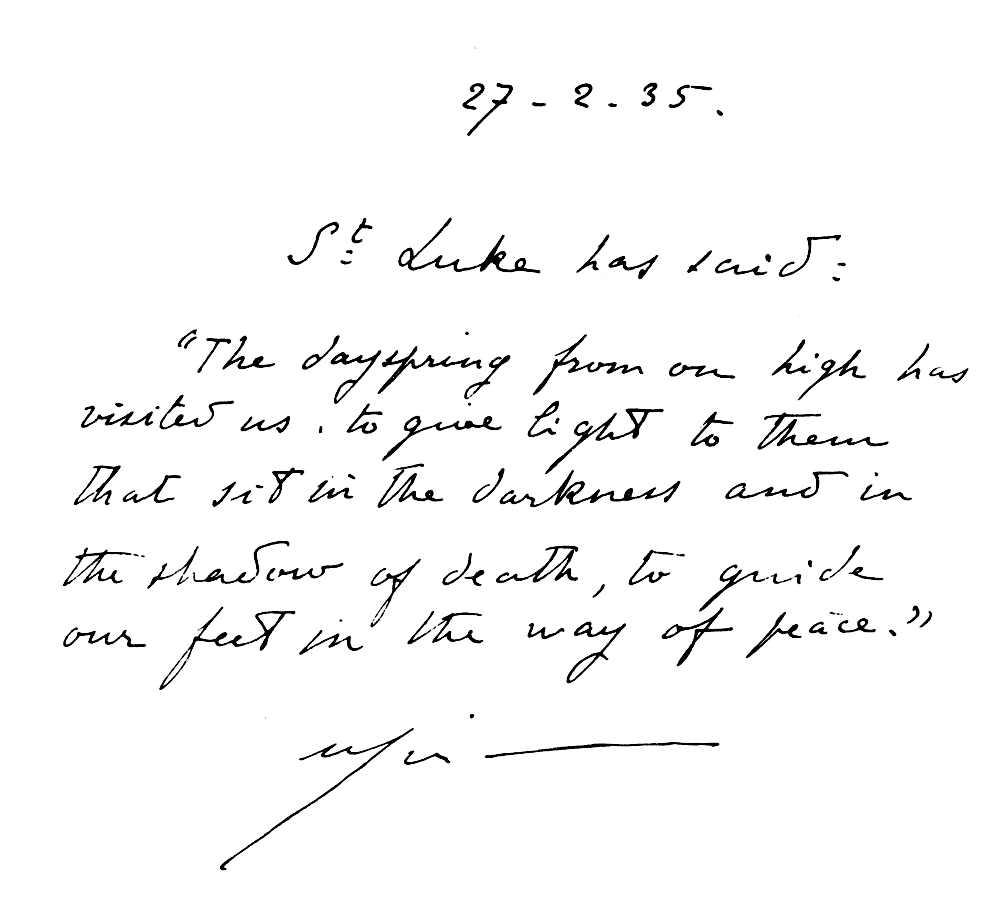 27-2-35.
St Luke has said:
"The dayspring from on high has
visited us. to give light to them
that sit in the darkness and in
the shadow of death, to guide
our feet in the way of peace."